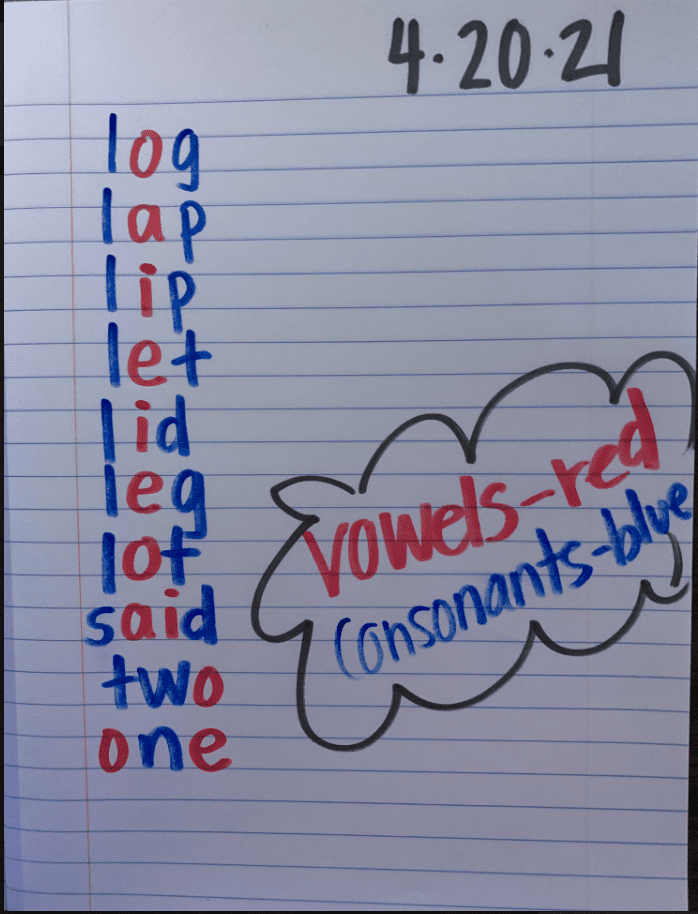 4.20.21
log
lap
lip
let
lid
leg
lot
said
two
one
vowels-red
consonants-blue